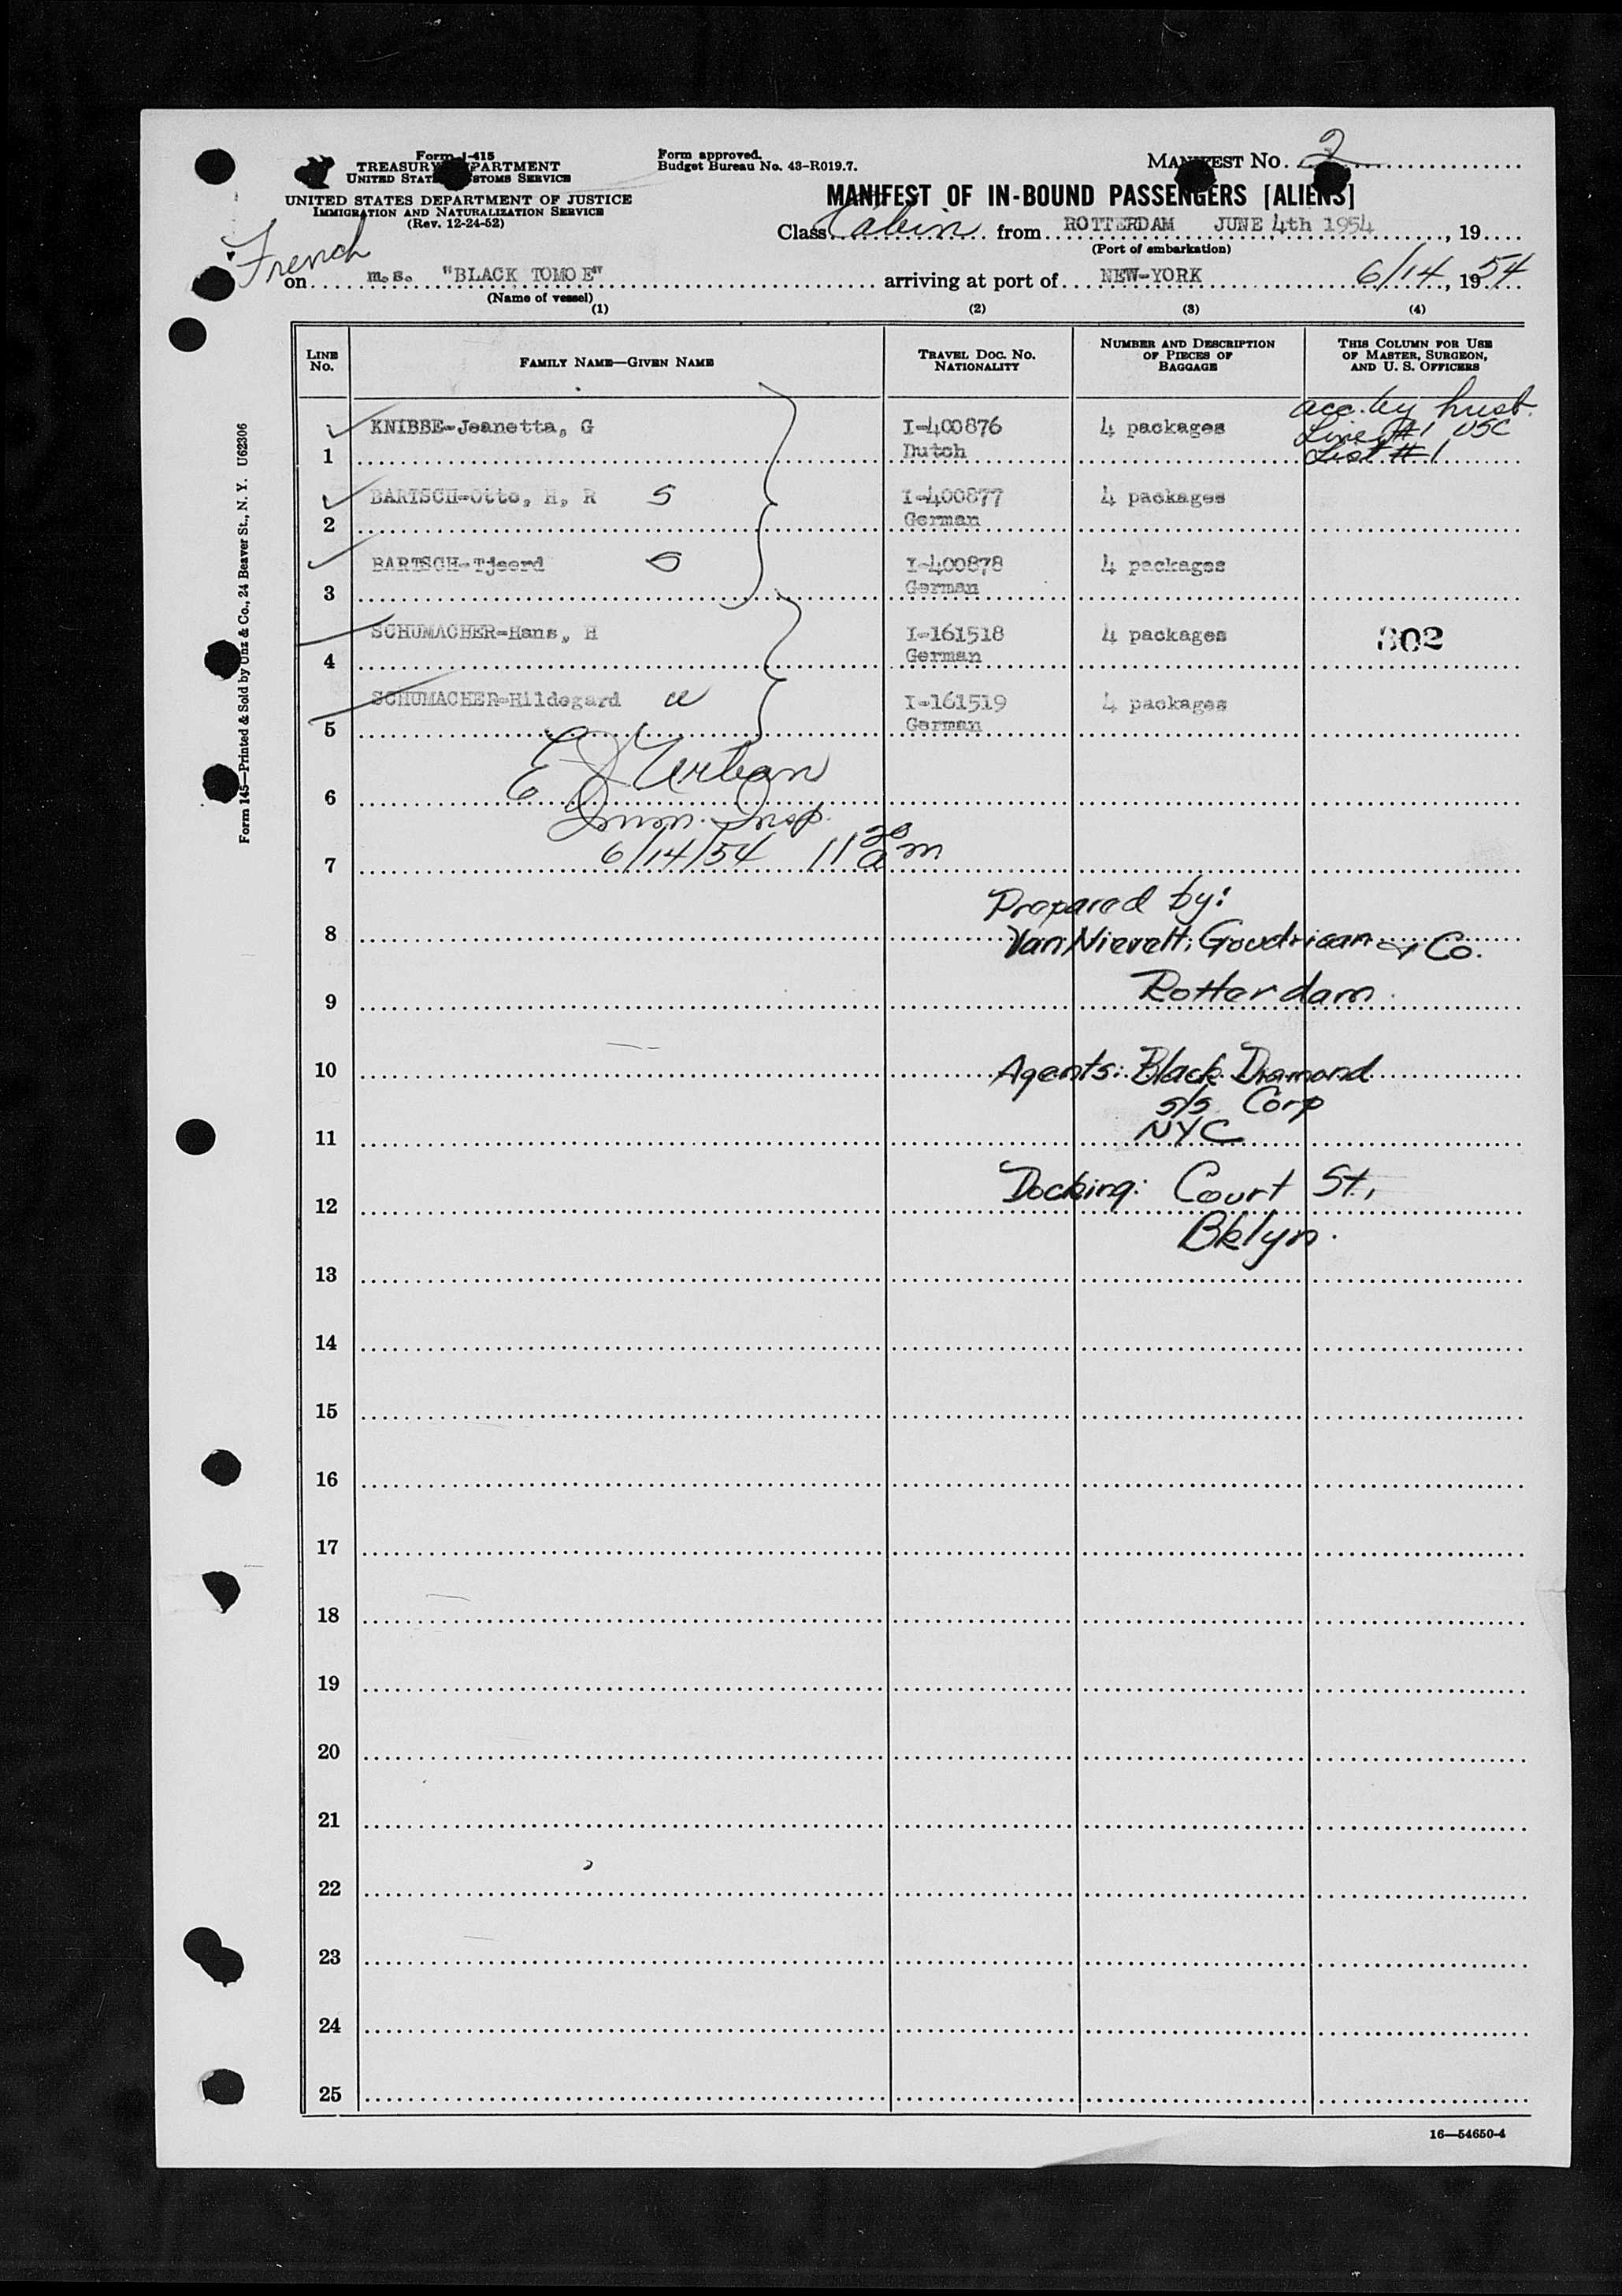 Form I-415
TREASURY DEPARTMENT
UNITED STATES CUSTOMS SERVICE
UNITED STATES DEPARTMENT OF JUSTICE
IMMIGRATION AND NATURALIZATION SERVICE
(Rev. 12-24-52)
Form approved.
Budget Bureau No. 43-R019.7.
MANIFEST NO. 2
MANIFEST OF IN-BOUND PASSENGERS [ALIENS]
Class Cabin from ROTTERDAM JUNE 4th 1954, 19
(Port of embarkation)
French
on m.s. "BLACK TOMOE" arriving at port of NEW-YORK 6/14, 1954
(Name of vessel)
(1) (2) (3) (4)
LINE NO. FAMILY NAME—GIVEN NAME TRAVEL DOC. NO. NATIONALITY NUMBER AND DESCRIPTION OF PIECES OF BAGGAGE THIS COLUMN FOR USE OF MASTER, SURGEON, AND U. S. OFFICERS
acc. by husb.
KNIBBE-Jeanetta, G I-400876 4 packages Line #1 USC
1 Dutch List #1
BARTSCH-Otto, H, R S I-400877 4 packages
2 German
BARTSCH-Tjeerd S I-400878 4 packages
3 German
SCHUMACHER-Hans, H I-161518 4 packages 302
4 German
SCHUMACHER-Hildegard I-161519 4 packages
5 German
E J Urban
6
Imm. Insp.
7 6/14/54 11 30 am
Prepared by:
8 Van Nievelt, Goudriaan & Co.
9 Rotterdam
10 Agents: Black Diamond
s/s Corp
11 NYC
12 Docking: Court St.,
Bklyn.
13
14
15
16
17
18
19
20
21
22
23
24
25
16—54650-4
Form 145—Printed & Sold by Unz & Co., 24 Beaver St., N. Y. U62306